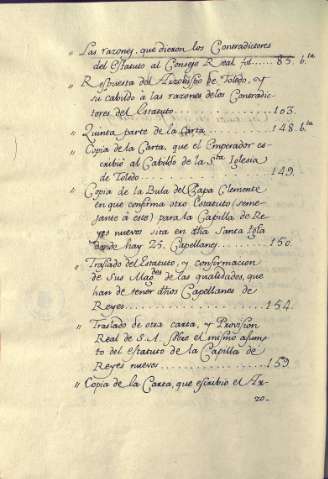 " Las razones, que dieron los Contradictores
del Estatuto al Consejo Real fol......85. bta
" Respuesta del Arzobispo de Toledo, y
su cabildo à las razones delos Contradic-
tores del Estatuto.............103.
" Quinta parte de la Carta.........148. bta
" Copia de la Carta, que el Emperador es-
cribiò al Cabildo de la Sta Iglesia
de Toledo................149.
" Copia de la Bula del Papa Clemente
en que confirma otro Estatuto (seme-
jante à èste) para la Capilla de Re-
yes nuevos sita en dha Santa Igla
donde hay 25. Capellanes........150.
" Traslado del Estatuto, y confirmacion
de Sus Magdes de las qualidades, que
han de tener dhos Capellanes de
Reyes....................154.
" Traslado de otra carta, y Provision
Real de S.A. sobre el mismo asun-
to del estatuto de la Capilla de
Reyes nuevos.............159.
" Copia de la Carta, que escribio el Ar-
zo-